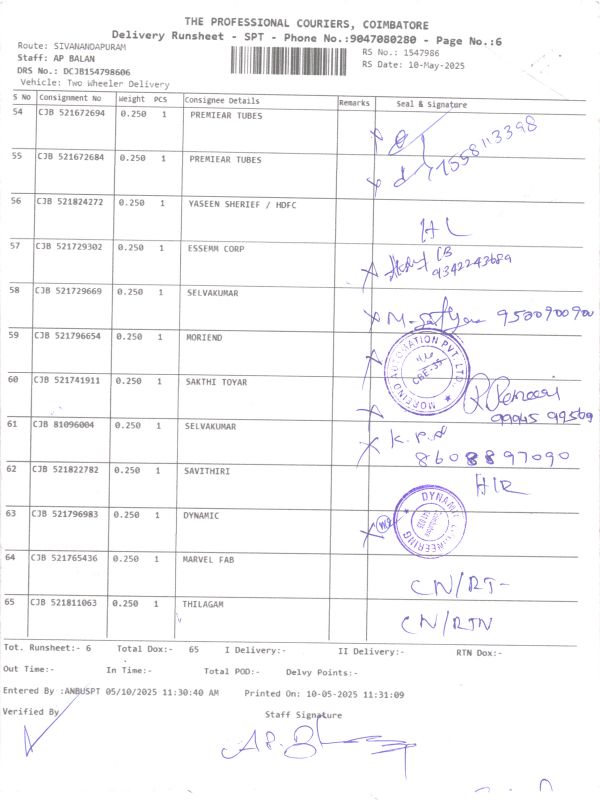 THE PROFESSIONAL COURIERS, COIMBATORE
Delivery Runsheet - SPT - Phone No.:9047080280 - Page No.:6
Route: SIVANANDAPURAM
RS No.: 1547986
Staff: AP BALAN
RS Date: 10-May-2025
DRS No.: DCJB154798606
Vehicle: Two Wheeler Delivery
S No Consignment No Weight PCS Consignee Details Remarks Seal & Signature
54 CJB 521672694 0.250 1 PREMIEAR TUBES
55 CJB 521672684 0.250 1 PREMIEAR TUBES 7558113398
56 CJB 521824272 0.250 1 YASEEN SHERIEF / HDFC
57 CJB 521729302 0.250 1 ESSEMM CORP 9342243689
58 CJB 521729669 0.250 1 SELVAKUMAR
59 CJB 521796654 0.250 1 MORIEND
AUTOMATION PVT. LTD. CBE-35
60 CJB 521741911 0.250 1 SAKTHI TOYAR
99945 99569
61 CJB 81096004 0.250 1 SELVAKUMAR K.P.
8608897090
62 CJB 521822782 0.250 1 SAVITHIRI
63 CJB 521796983 0.250 1 DYNAMIC
64 CJB 521765436 0.250 1 MARVEL FAB CN/RT-
65 CJB 521811063 0.250 1 THILAGAM CN/RTN
Tot. Runsheet:- 6 Total Dox:- 65 I Delivery:- II Delivery:- RTN Dox:-
Out Time:- In Time:- Total POD:- Delvy Points:-
Entered By :ANBUSPT 05/10/2025 11:30:40 AM Printed On: 10-05-2025 11:31:09
Verified By
Staff Signature